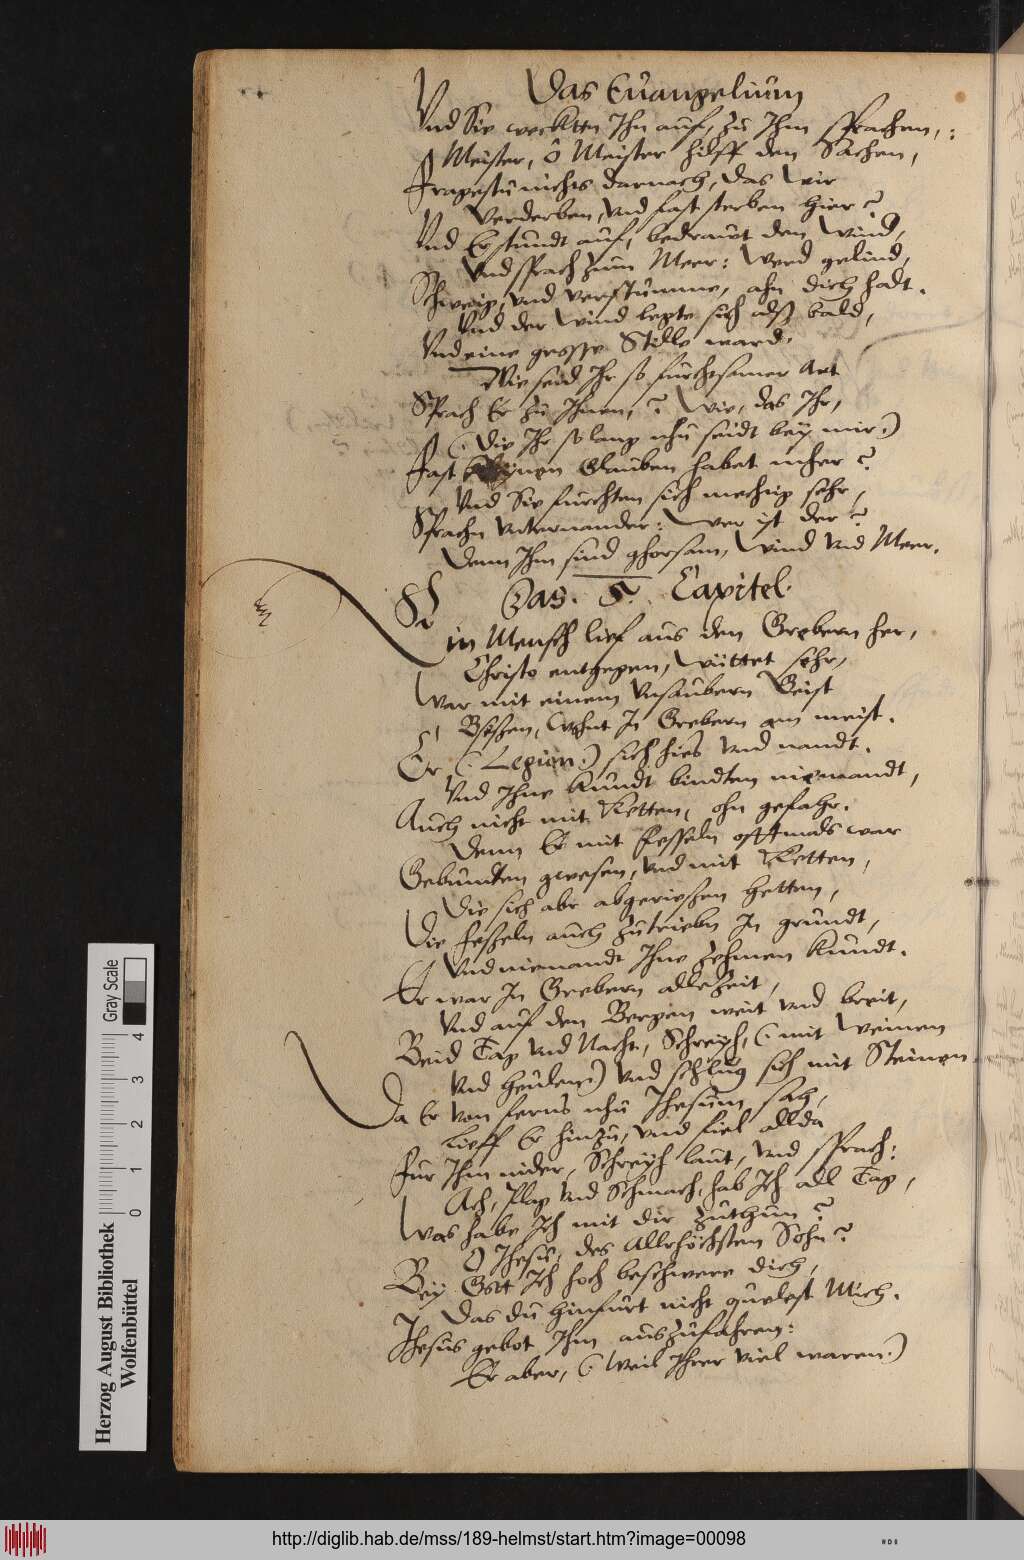 Das Euangelium
Vnd Sie weckten Ihn auf, zu Ihm sprachen,:
Meister, ô Meister hilff den Sachen,
Fragestu nichts darnach, das Wir
Verderben, vnd fast sterben hier?
Vnd Er stundt auf, bedrawt den Wind,
Vnd sprach zum Meer: Werd gelind,
Schweig, vnd verstumme, ahn dich halt.
Vnd der Wind legte sich alß bald,
Vnd eine grosse Stille ward.
Wie seid Ihr so furchtsamer Art
Sprach Er zu Ihnen,? Wie, das Ihr,
(: Die Ihr so lang nhu seidt bey mir:)
Fast keynen Glauben habet mher?
Vnd Sie furchten sich mechtig sehr,
Sprachn vnternander: Wer ist der?
Denn Ihm sind ghorsam, Wind vnd Meer.
Das. 5. Capitel.
Ein Mensch lief aus den Grebern her,
Christo entgegen, Wüttet sehr,
War mit einem vnsaubern Geist
Bseßen, Wohnt In Grebern am meist.
Er (: Legion:) sich hies vnd nandt.
Vnd Ihne kundt bindten niemandt,
Auch nicht mit Ketten, ohn gefahr.
Denn Er mit fesseln offtmals war
Gebundten gwesen, vnd mit Ketten,
Die sich abr abgerießen hetten,
Die feßeln auch zutriebn In grundt,
Vnd niemandt Ihne zehmen kundt.
Er war In Grebern alle Zeit,
Vnd auf den Bergen weit vnd breit,
Beid Tag vnd Nacht, Schreyh, (: mit Weinen
Vnd heulen:) vnd schlug sich mit Steinen
Da Er von ferns nhu Jhesum sah,
Lieff Er hinzu, vnd fiel allda
Fur Ihm nider, Schreyh laut, vnd sprach:
Ach, Plag vnd Schmach, hab Ich all Tag,
Was habe Ich mit dir zuthun?
O Jhesu, des Allrhöchsten Sohn?
Bey Gott Ich hoch beschwere dich,
Das du hinfurt nicht quelest Mich.
Jhesus gebot Ihm auszufahren:
Er aber, (: Weil Ihrer viel waren:)
Herzog August Bibliothek
Wolfenbüttel
0 1 2 3 4
Gray Scale
http://diglib.hab.de/mss/189-helmst/start.htm?image=00098